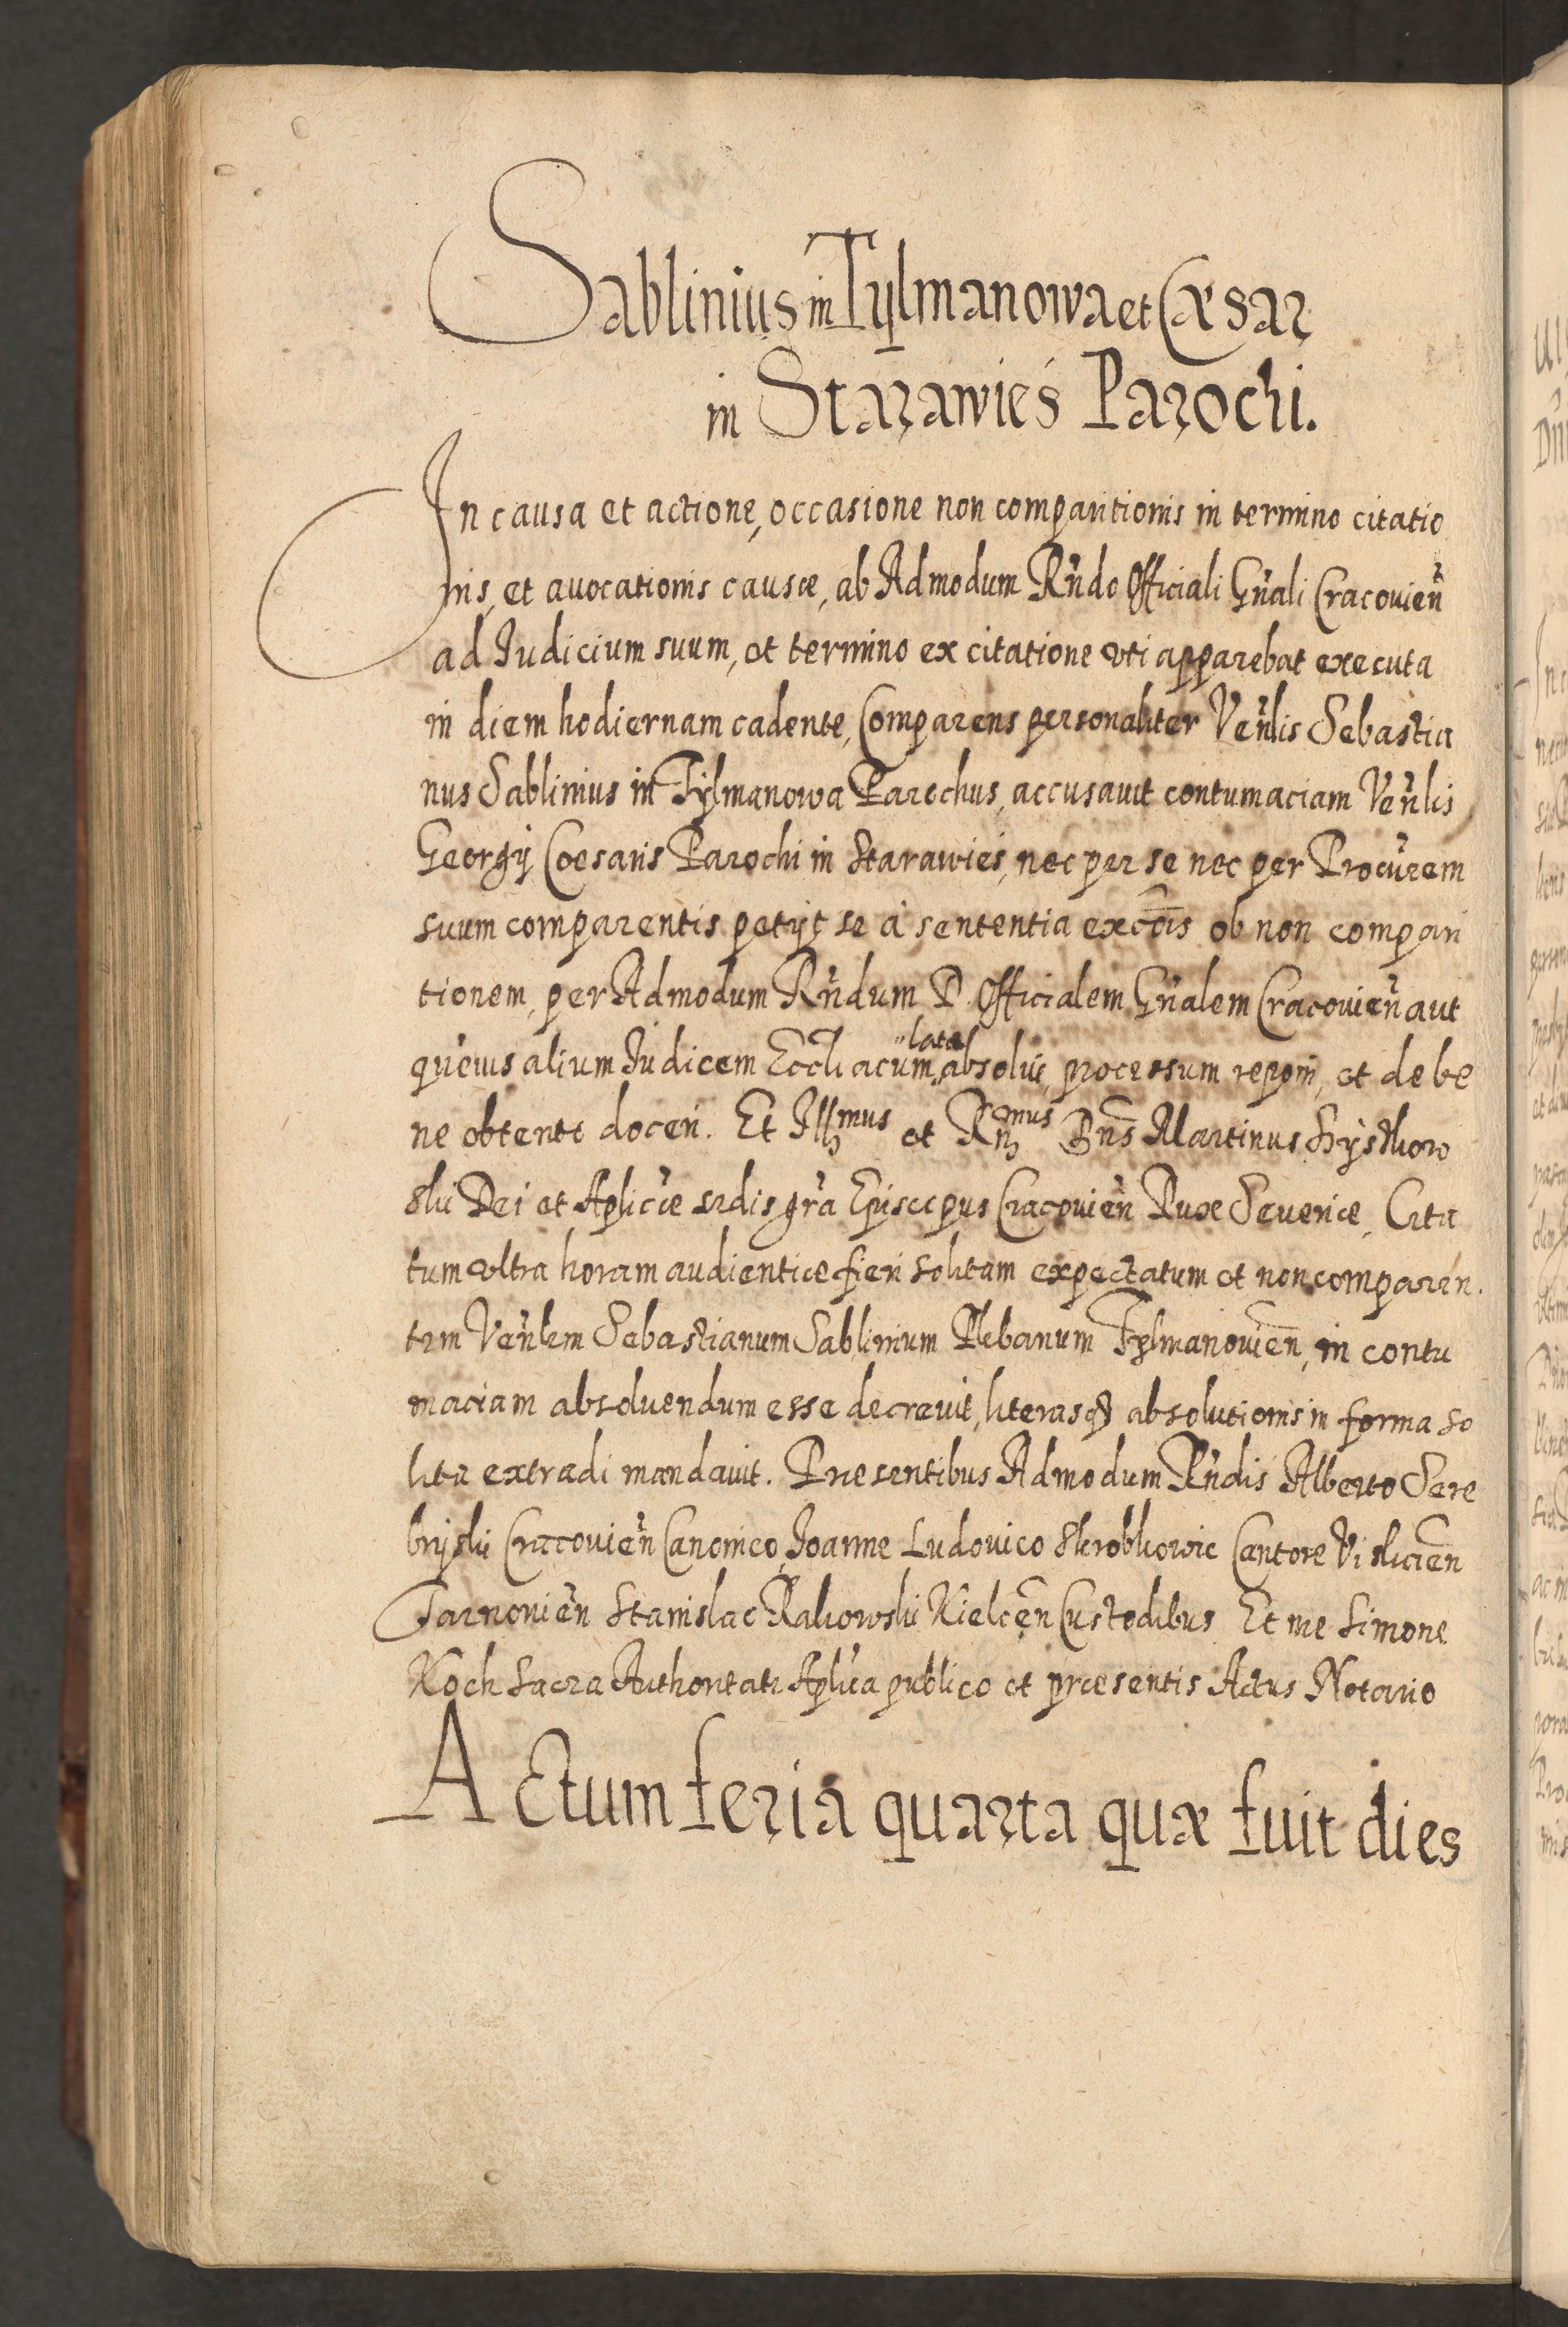 Sablinius in Tylmanowa et Cæsar
in Starawieś Parochi.
In causa et actione, occasione non comparitionis in termino citatio
nis, et avocationis causæ, ab Admodum Rndo Officiali Gnali Cracovien
ad Iudicium suum, et termino ex citatione vti apparebat executa
in diem hodiernam cadente, Comparens personaliter Venlis Sebastia
nus Sablinius in Tylmanowa Parochus, accusavit contumaciam Venlis
Georgÿ Cæsaris Parochi in Starawieś, nec per se nec per Procurem
suum comparentis petÿt se à sententia excõis ob non compari
tionem, per Admodum Rndum D. Officialem Gnalem Cracovien aut
quemvis alium Iudicem Eccli acum lata absolvi, processum reponi, et de be
ne obtento doceri. Et Illmus et Rnmus Dns Martinus Szÿszkow
ski Dei et Aplicæ sedis gra Episcopus Cracovien Dux Severiæ, Cita
tum vltra horam audientiæ fieri solitam expectatum et non comparen
tem Venlem Sebastianum Sablinium Plebanum Tylmanovien, in contu
maciam absolvendum esse decrevit, literasq absolutionis in forma so
lita extradi mandavit. Præsentibus Admodum Rndis Alberto Sere
bryski Cracovien Canonico, Ioanne Ludovico Skrobkowic Cantore Vislicien
Tarnovien Stanislao Rakowski Kielcen Custodibus Et me Simone
Koch Sacra Authoritate Aplica publico et præsentis Actus Notario
Actum feria quarta quæ fuit dies